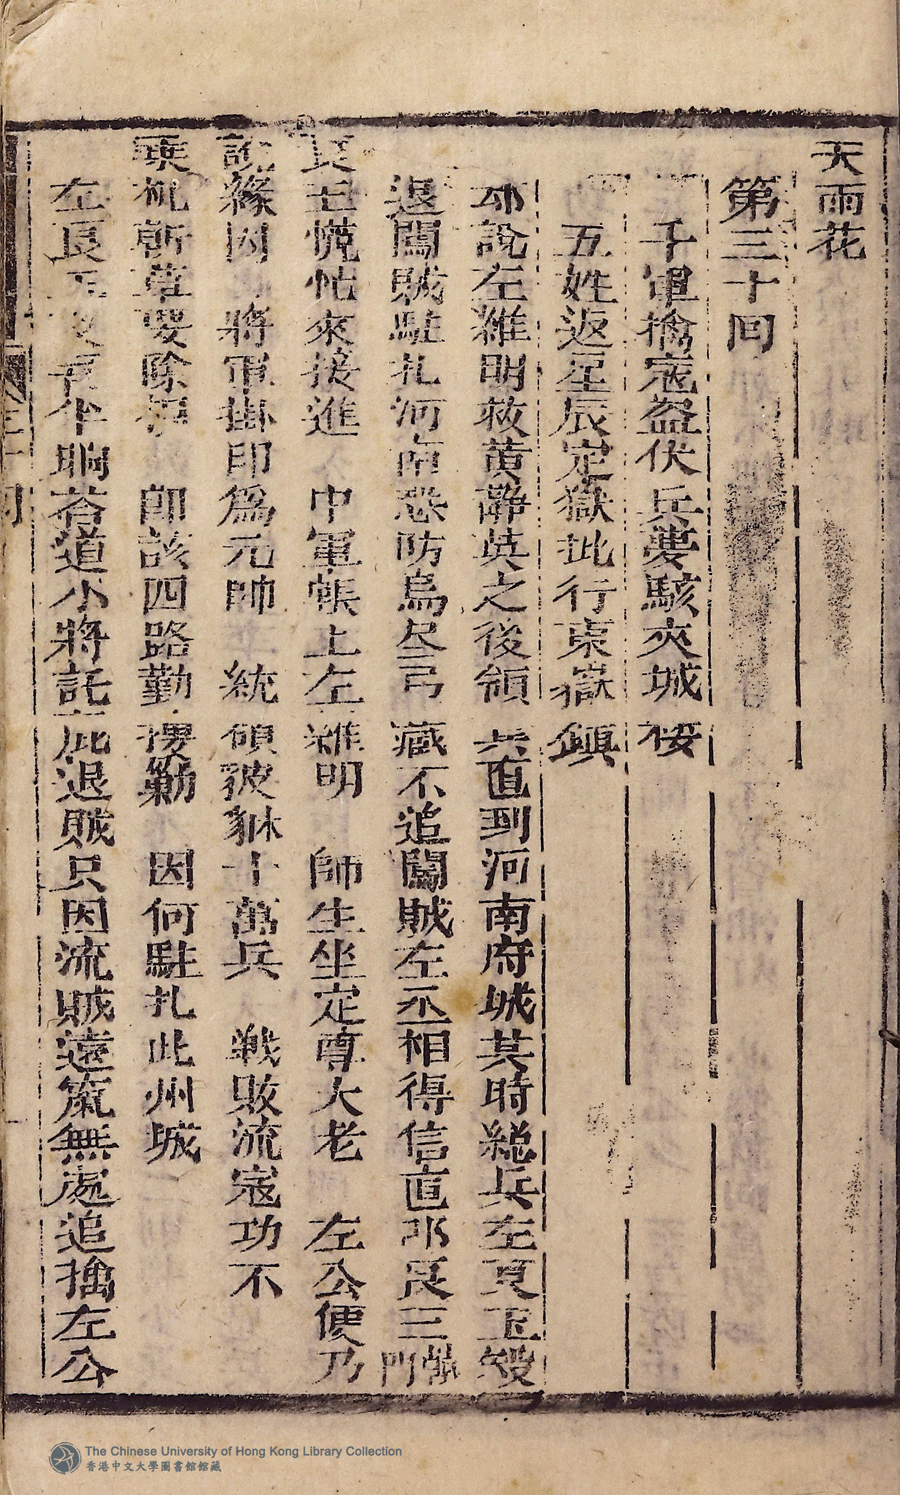 天雨花
第三十回
千軍擒寇盔伏兵夢駭夾城樓
五姓返星辰定獄此行東嶽鎮
說左維明救黃靜英之後領兵直到河南府城其時総兵左良玉
退闖賊駐扎河南恐防鳥尽弓藏不追闖賊左丞相得信直
良玉慌忙來接進 中軍帳上左維明 師生坐定尊大老 左公便乃
說緣因 將軍掛印為元帥 統領貔貅十萬兵 戦敗流寇功不
乘机斬草要除根 即該四路勤 因何駐扎此州城
左良玉 半晌荅道小將託庇退賊只因流賊遠 無處追擒左公
The Chinese University of Hong Kong Library Collection
香港中文大學圖書館館藏